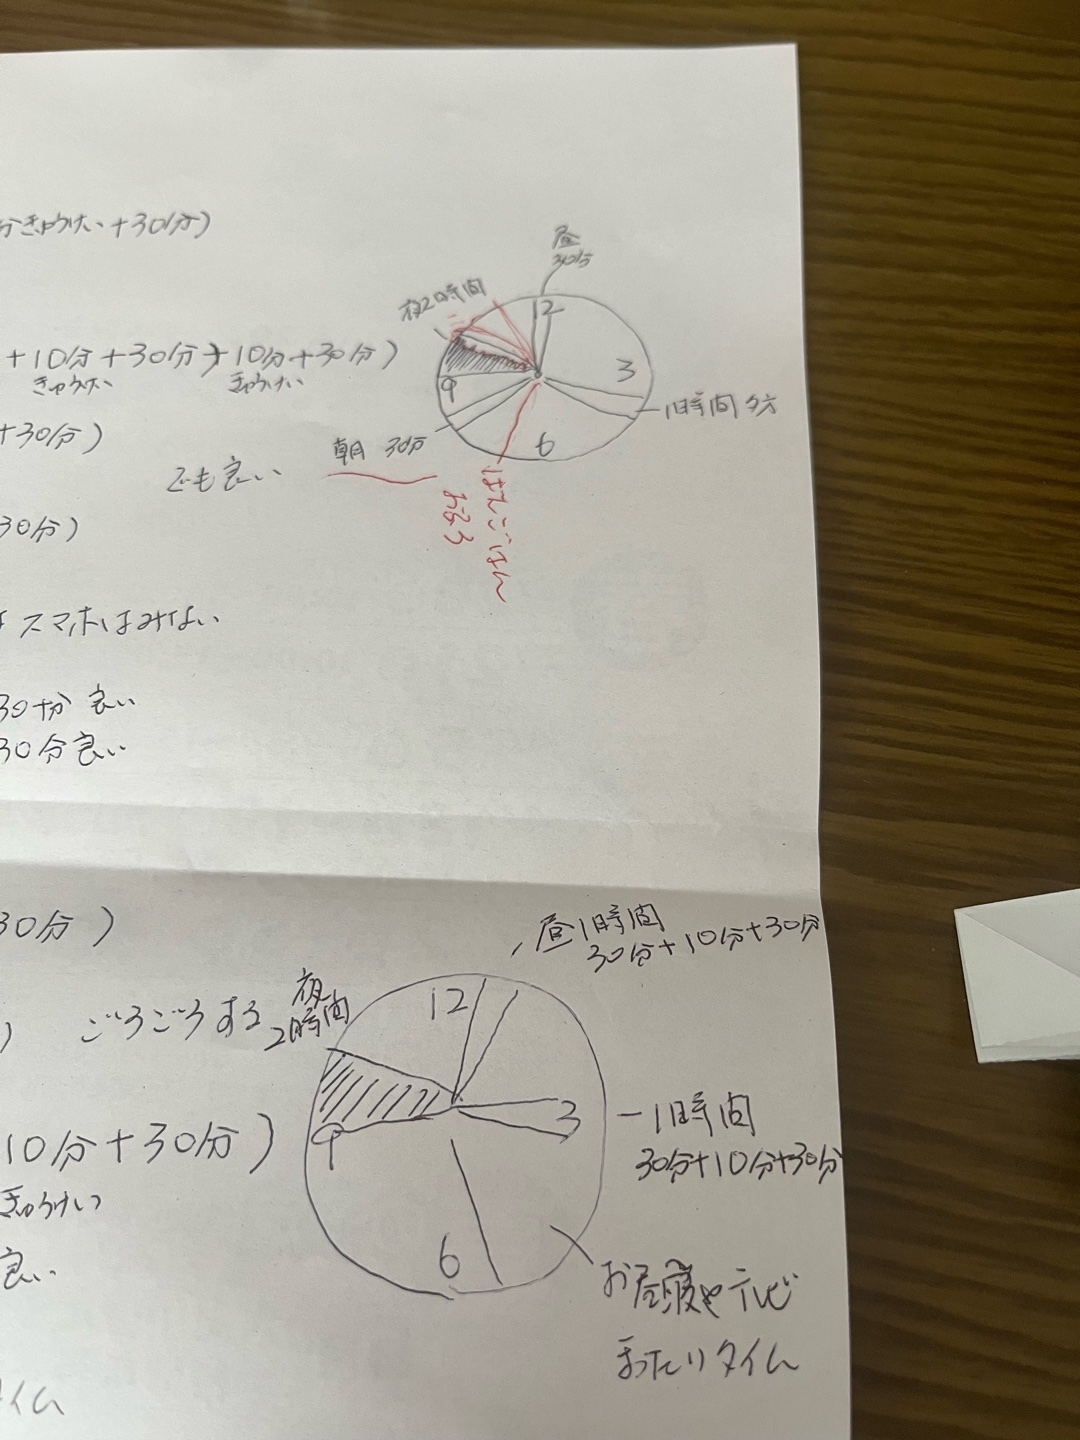 分きゅうけい+30分)
昼
30分
夜2時間
12
+10分+30分+10分+30分)
きゅうけい きゅうけい
3
9
1時間 夕方
+30分)
朝 30分
6
でも良い
ばんごはん
おふろ
30分)
スマホはみない
良い
30分良い
30分)
昼1時間
30分+10分+30分
夜
2時間
ごろごろする
12
3
1時間
30分+10分+30分
9
10分+30分)
きゅうけい
良い
6
お昼寝やテレビ
まったりタイム
イム